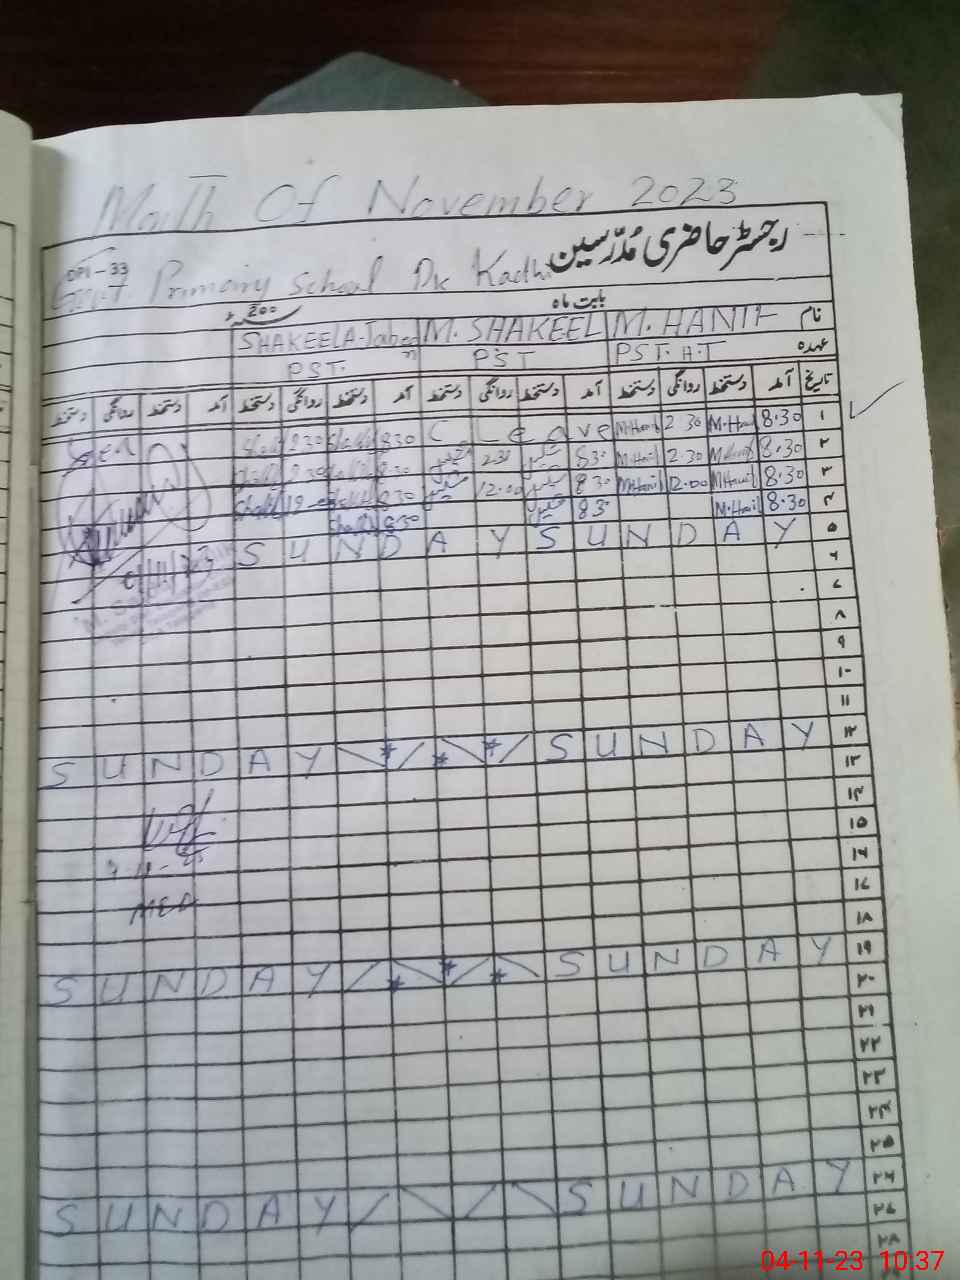 Month Of November 2023
رجسٹر حاضری مُدرّسین
DPI-33
Govt. Primary School Dk Kadhi
بابت ماہ
200
نام M. HANIF M. SHAKEEL SHAKEELA
عہدہ PST. H.T PST PST.
تاریخ آمد دستخط روانگی دستخط آمد دستخط روانگی دستخط آمد دستخط روانگی دستخط آمد دستخط روانگی دستخط
۱ 8.30 M.Hanif 2.30 M.Hanif C Leave 8.30 2.30
۲ 8.30 M.Hanif 2.30 M.Hanif 8.30 شکیل 2.30 شکیل 8.30 2.30
۳ 8.30 M.Hanif 12.00 M.Hanif 8.30 شکیل 12.00 شکیل 8.30
۴ 8.30 M.Hanif 8.30 شکیل 8.30
۵ SUNDAY SUNDAY
۶
۷
۸
۹
۱۰
۱۱
۱۲ SUNDAY SUNDAY
۱۳
۱۴
۱۵
۱۶
۱۷
۱۸
۱۹ SUNDAY SUNDAY
۲۰
۲۱
۲۲
۲۳
۲۴
۲۵
۲۶ SUNDAY SUNDAY
۲۷
۲۸
Seen
MEA
04-11-23 10:37